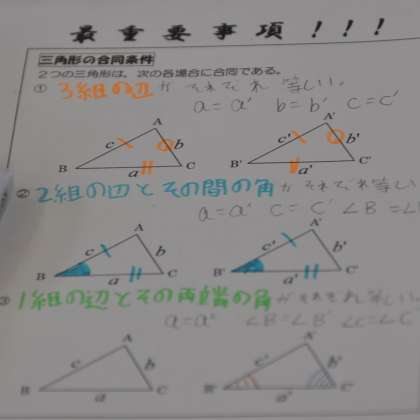 最重要事項！！！
三角形の合同条件
２つの三角形は、次の各場合に合同である。
① 3組の辺が それぞれ 等しい。
a = a' b = b' c = c'
A A'
c b c' b'
B a C B' a' C'
② 2組の辺とその間の角が それぞれ等しい
a = a' c = c' ∠B = ∠
A A'
c b c' b'
B a C B' a' C'
③ 1組の辺とその両端の角が それぞれ 等しい。
a = a' ∠B = ∠B' ∠C = ∠C'
A A'
c b c' b'
B a C B' a' C'